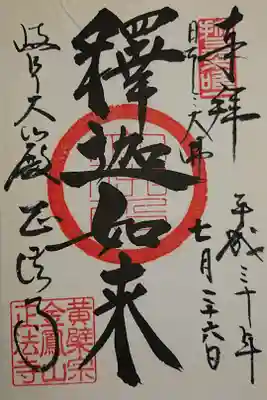 奉拝
平成三十年
七月二十六日
日本三大佛
釋迦如来
岐阜大仏殿 正法寺
黄檗宗
金鳳山
正法寺